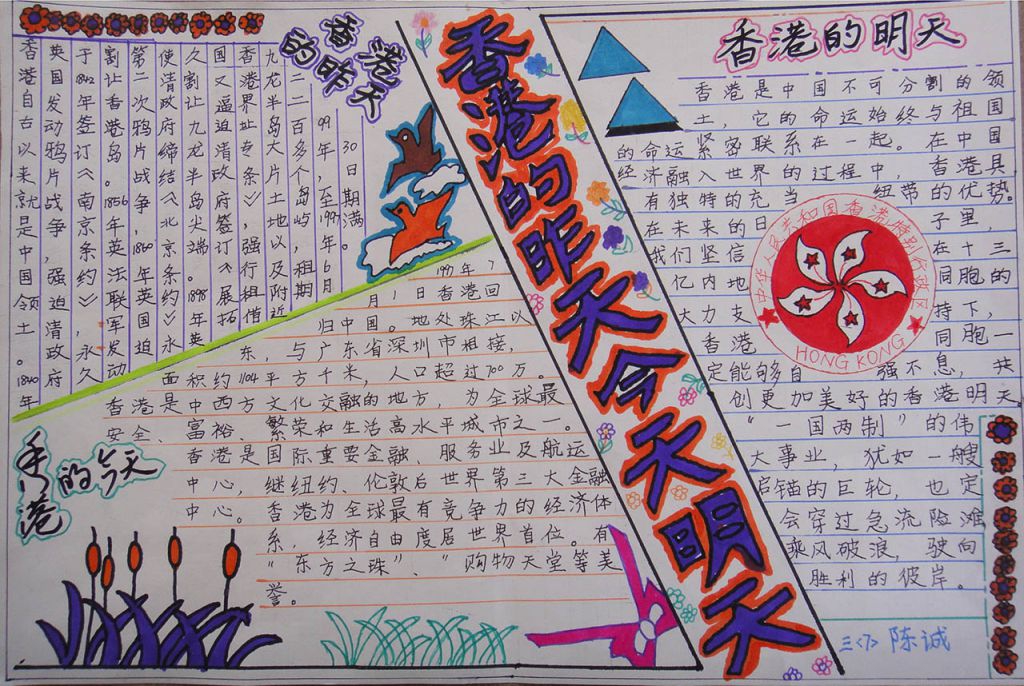 香港的昨天今天明天
香港的昨天
香港自古以来就是中国领土。1840年
英国发动鸦片战争，强迫清政府
于1842年签订《南京条约》，永久
割让香港岛。1856年英法联军发动
第二次鸦片战争，1860年英国迫
使清政府缔结《北京条约》永
久割让九龙半岛尖端。1898年英
国又逼迫清政府签订《展拓
香港界址专条》，强行租借
九龙半岛大片土地以及附近
二二百多个岛屿，租期
99年，至1997年6月
30日期满。
香港的今天
1997年7
月1日香港回
归中国。地处珠江以
东，与广东省深圳市相接，
面积约1104平方千米，人口超过700万。
香港是中西方文化交融的地方，为全球最
安全、富裕、繁荣和生活高水平城市之一。
香港是国际重要金融、服务业及航运
中心，继纽约、伦敦后世界第三大金融
中心。香港为全球最有竞争力的经济体
系，经济自由度居世界首位。有
“东方之珠”、“购物天堂等美
誉。
香港的明天
香港是中国不可分割的领
土，它的命运始终与祖国
的命运紧密联系在一起。在中国
经济融入世界的过程中，香港具
有独特的充当 纽带的优势。
在未来的日 子里，
我们坚信 在十三
亿内地 同胞的
大力支 持下，
香港 同胞一
定能够自 强不息，共
创更加美好的香港明天。
“一国两制”的伟
大事业，犹如一艘
启锚的巨轮，也定
会穿过急流险滩
乘风破浪，驶向
胜利的彼岸。
中华人民共和国香港特别行政区
HONG KONG
三<7> 陈诚